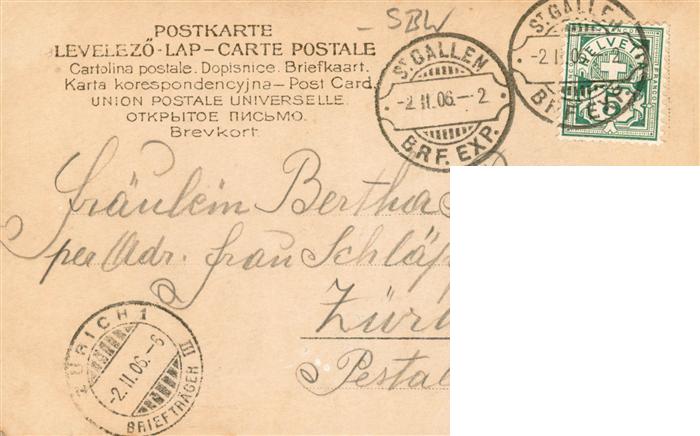 SBW
POSTKARTE
LEVELEZŐ-LAP-CARTE POSTALE
Cartolina postale. Dopisnice. Briefkaart.
Karta korespondencyjna-Post Card.
UNION POSTALE UNIVERSELLE.
ОТКРЫТОЕ ПИСЬМО.
Brevkort.
ST. GALLEN
-2.II.06.-2
BRF. EXP.
ST. GALLEN
-2.II.06. 2
BRF. EXP.
HELVETIA
FRANCO
5
Fräulein Bertha
per Adr. Frau
ZÜRICH 1
-2.II.06.-6
III
BRIEFTRÄGER